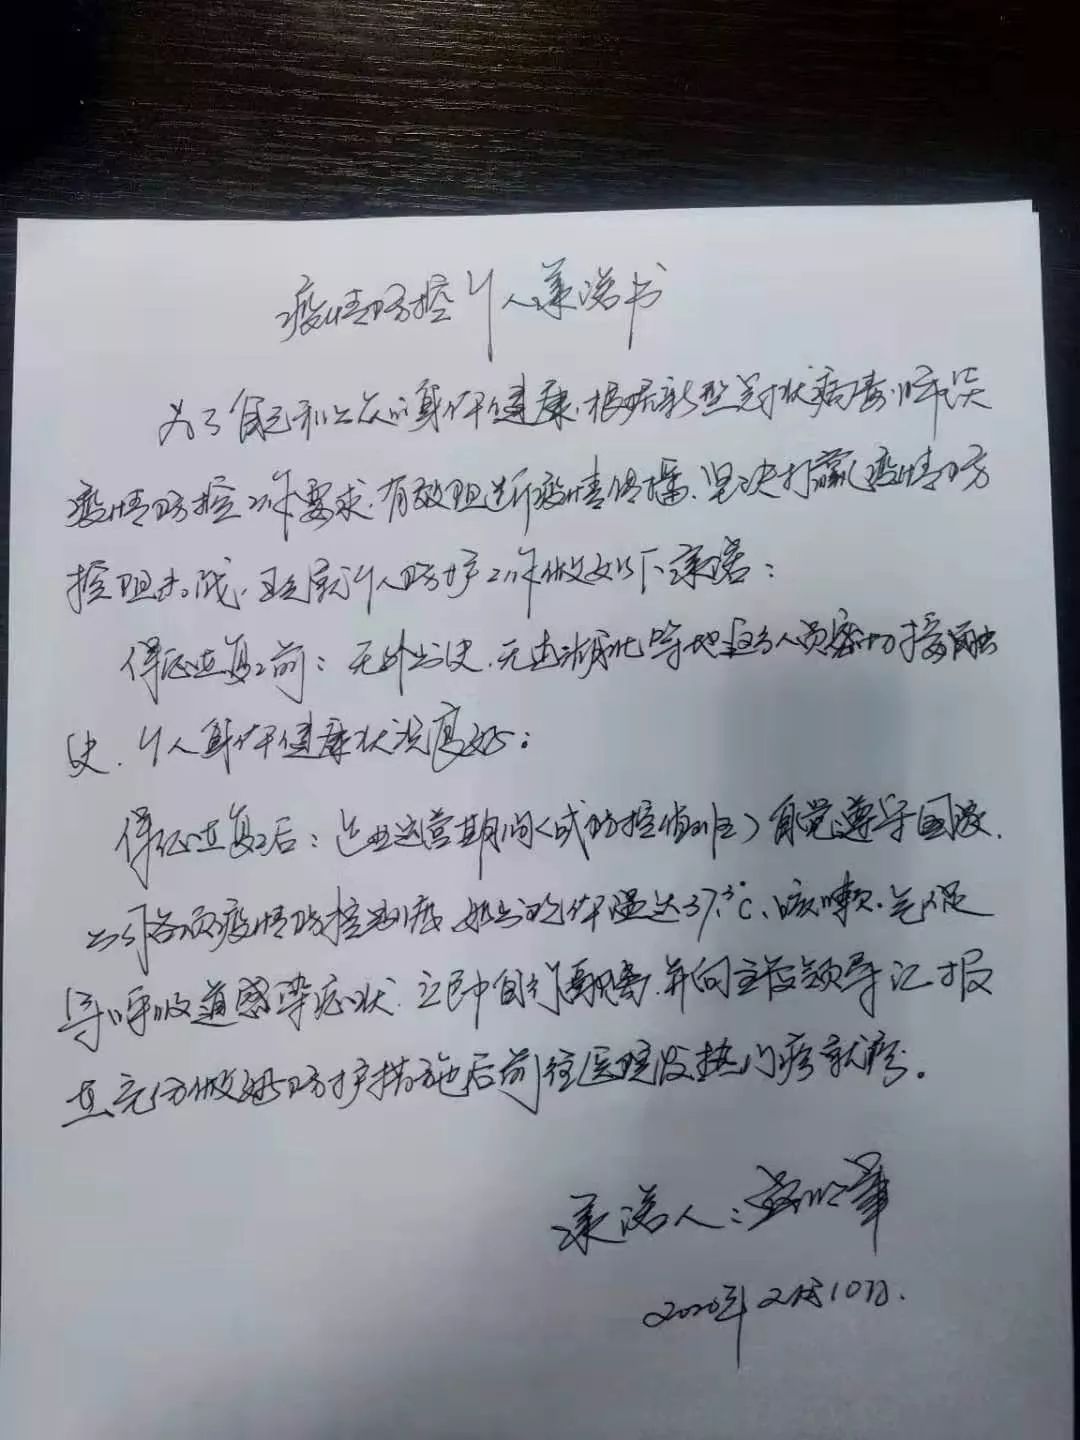 疫情防控个人承诺书
为了自己和公众的身体健康,根据新型冠状病毒肺炎
疫情防控工作要求,有效阻断疫情传播,坚决打赢疫情防
控阻击战,现就个人防护工作做如下承诺:
保证返复工前:无外出史,无与湖北等地区人员密切接触
史,个人身体健康状况良好;
保证返复工后:企业运营期间(或防控值班)自觉遵守国家、
公司各项疫情防控制度,如出现体温达37.3℃、咳嗽、气促
等呼吸道感染症状,立即自行隔离,并向主管领导汇报
且充分做好防护措施后前往医院发热门诊就诊。
承诺人:
2020年2月10日.